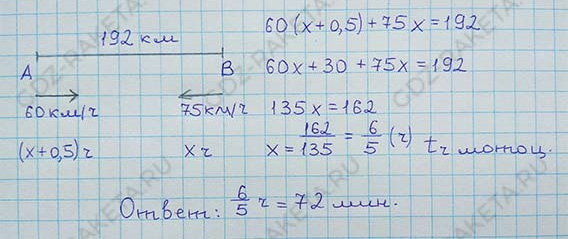 192 км
A B
60 км/ч 75 км/ч
(x+0,5) ч x ч
60(x+0,5)+75x=192
60x+30+75x=192
135x=162
x=162/135=6/5 (ч) t ч мотоц.
Ответ: 6/5 ч = 72 мин.
GDZ-RAKETA.RU